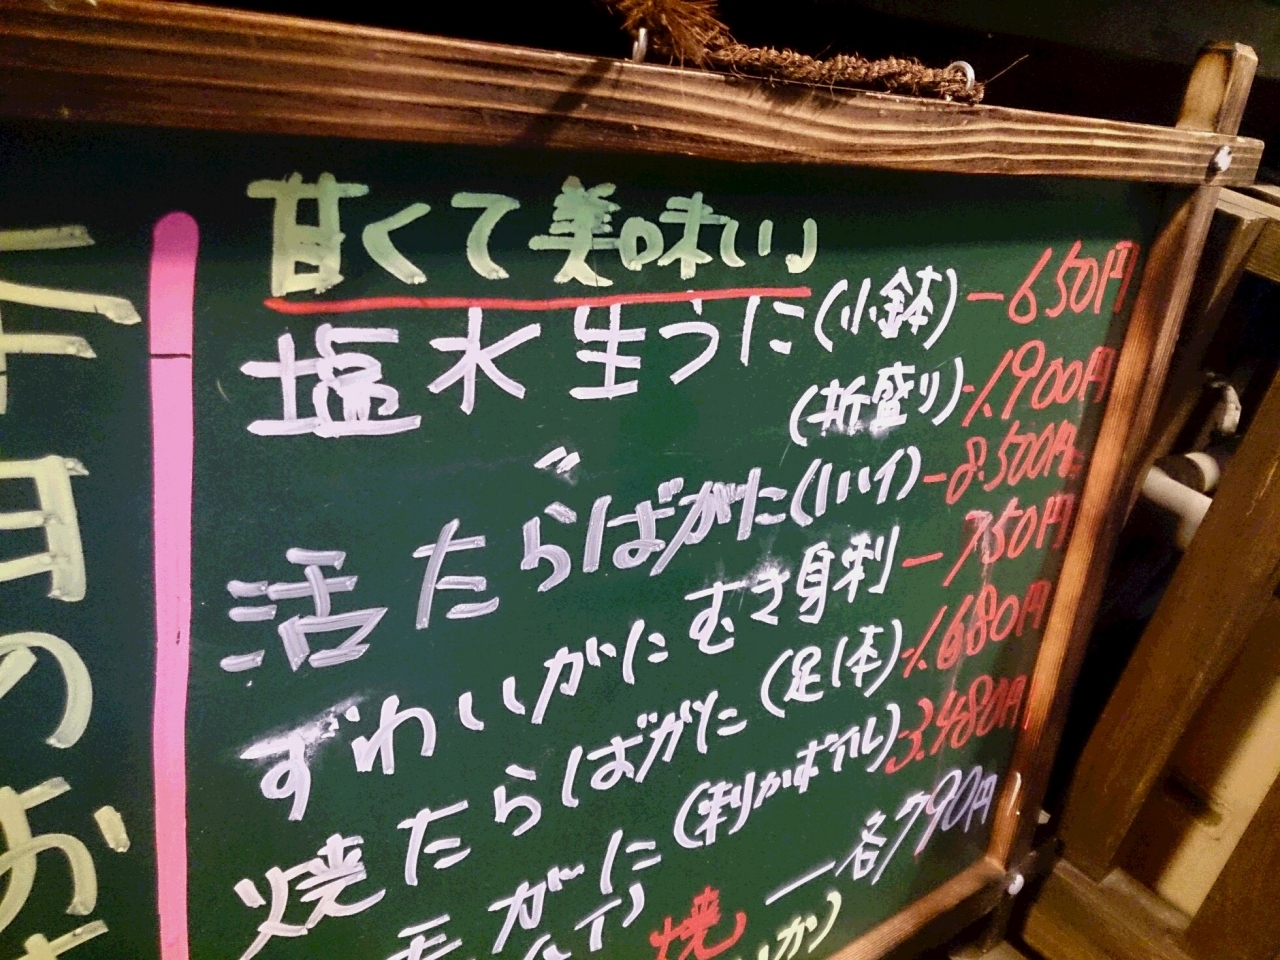 本日のお
甘くて美味しい
塩水生うに(小鉢)ー650円
(折盛り)-1,900円
活たらばがに(1パイ)-8.500円
ずわいがにむき身刺ー750円
焼たらばがに(足1本)-1.680円
毛がに(刺かボイル)-3.480円
ー各790円
焼